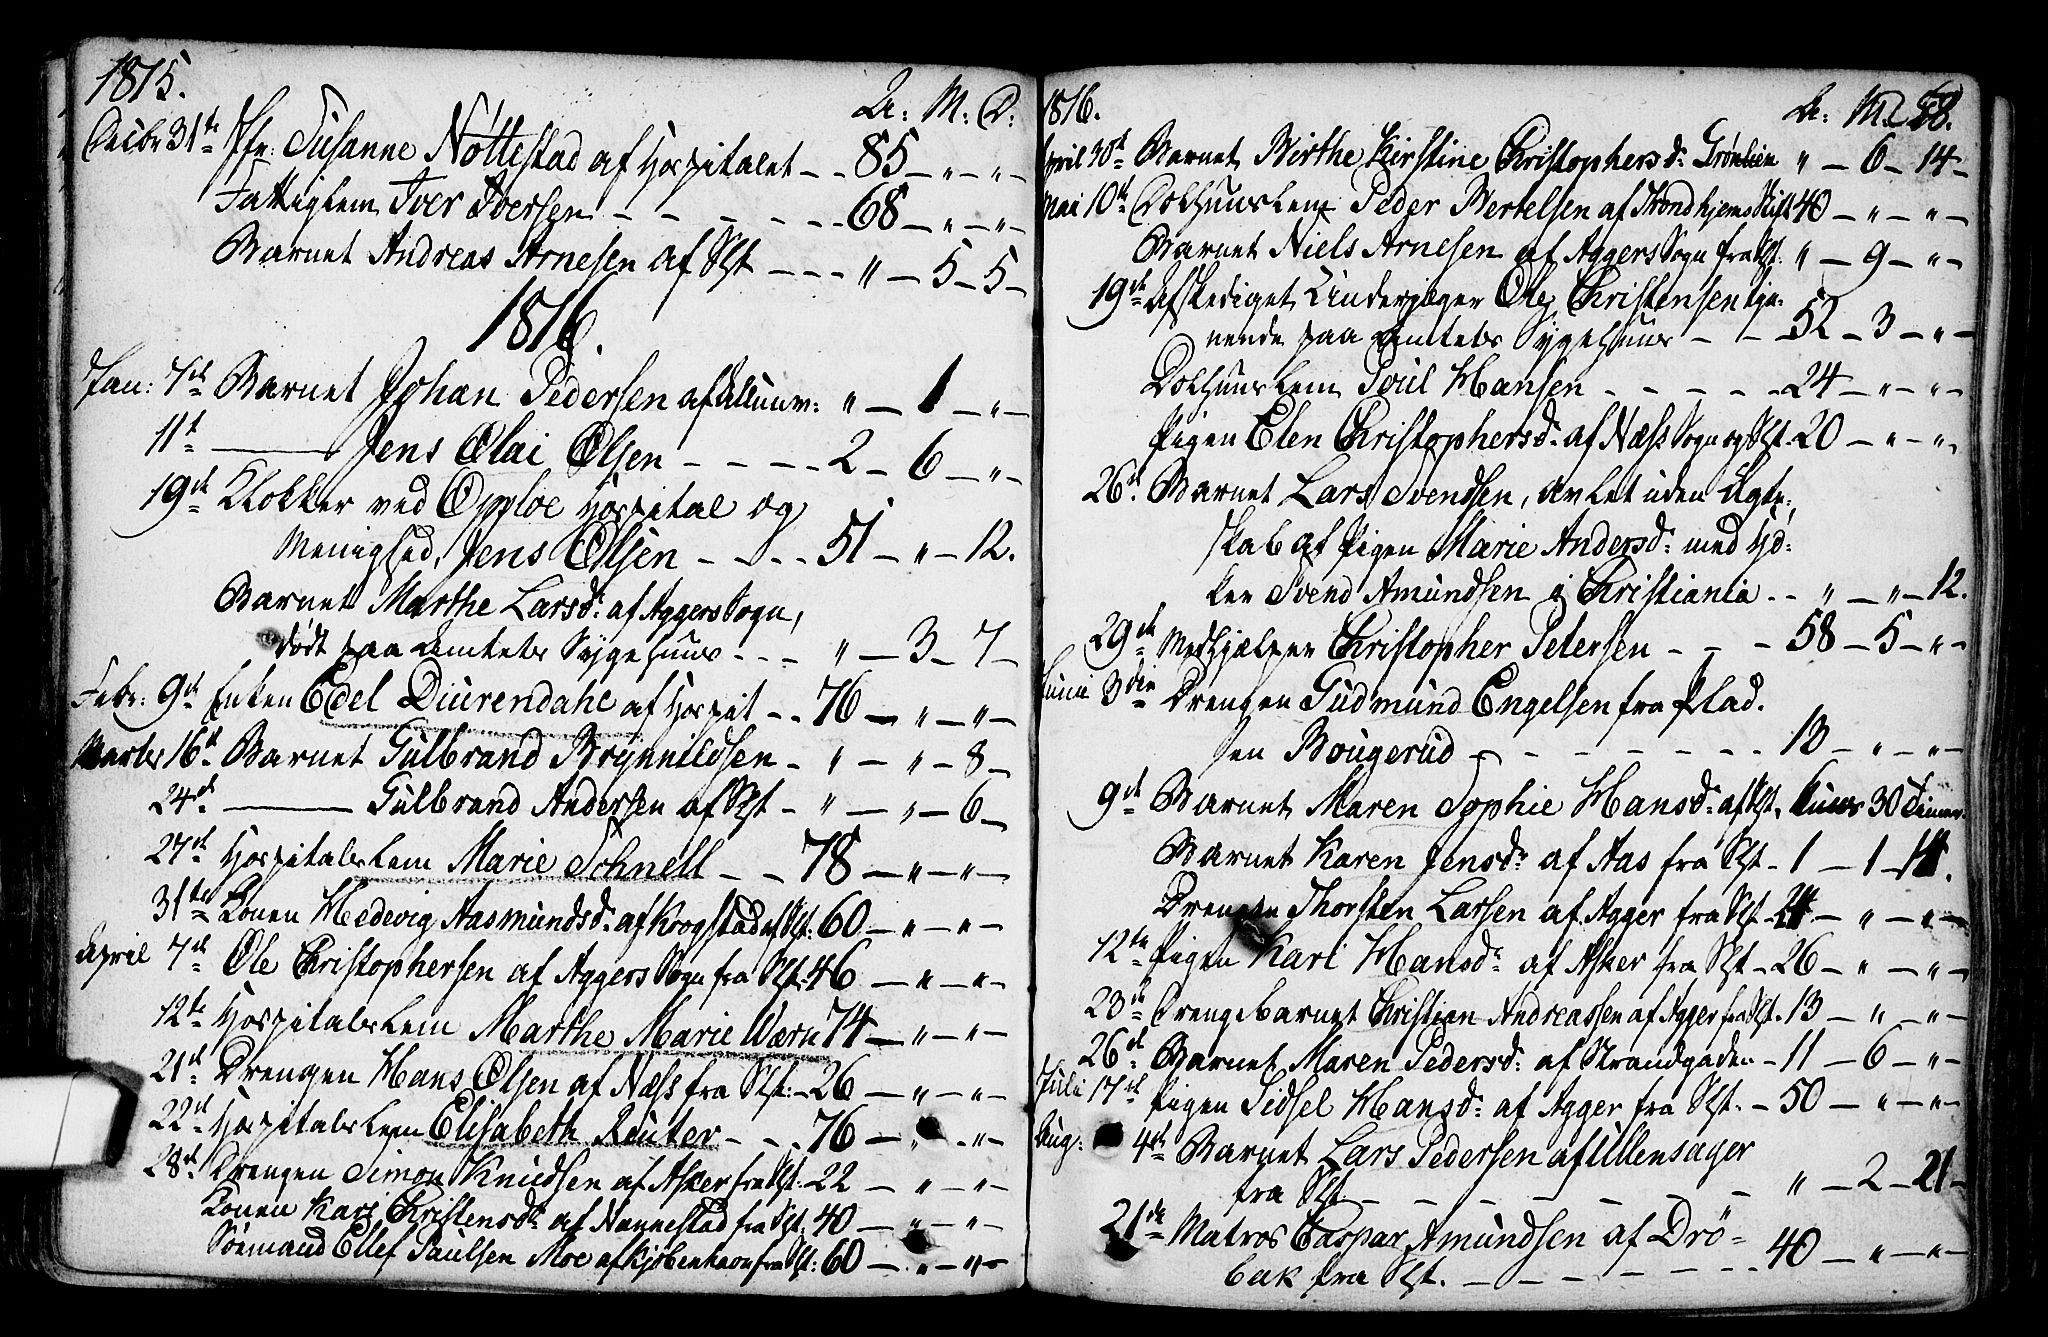 1815.
A: M: D:
Decbr 31te Jfr: Susanne Nöttestad af Hospitalet - - 85 - " - " -
Fattiglem Iver Iversen - - - - - - 68 - " - " -
Barnet Andreas Arnesen af Slst - - - " - 5 - 5 -
1816.
Jan: 7de Barnet Johan Pedersen af " - 1 - " -
11te ——— Jens Olai Olsen - - - - 2 - 6 - " -
19de Klokker ved Opsloe Hospital og
Menighed, Jens Olsen - - - - 51 - " - 12.
Barnet Marthe Larsdr. af Aggers Sogn,
dödt paa Amtets Sygehuus - - - " - 3 - 7 -
Febr: 9de Enken Edel Diurendahl af Hospit - - 76 - " - " -
Marts 16de Barnet Gulbrand Brynnildsen - " - " - 8 -
24de ——— Gulbrand Andersen af Slst - " - " - 6 -
27de Hospitalslem Marie Schnell - - 78 - " - " -
31te Konen Hedevig Aasmundsdr. af Krogstad af Slst: 60 - " - " -
April 7de Ole Christophersen af Aggers Sogn fra Slst. 46 - " - " -
12te Hospitalslem Marthe Marie Wærn 74 - " - " -
21de Drengen Hans Olsen af Næss fra Slst: - 26 - " - " -
22de Hospitalslem Elisabeth Reuter - - - 76 - " - " -
28de Drengen Simon Knudsen af Asker fra Slst: 22 - " - " -
Konen Kari Christensdr. af Nannestad fra Slst. 40 - " - " -
Söemand Ellef Paulsen Moe af Kjöbenhavn fra Slst: 60 - " - " -
1816.
A: M: D
68.
April 30te Barnet Birthe Kirstine Christophersdr. Grønlien " - 6 - 14 -
Mai 10de Dolhuuslem Peder Bertelsen af Trondhjems Stift 40 - " - " -
Barnet Niels Arnesen af Aggers Sogn fra Slst. " - 9 - " -
19de Afskediget Underjæger Ole Christensen tje-
nende paa Amtets Sygehuus - - 52 - 3 - " -
Dolhuuslem Poul Hansen - - - - - 24 - " - " -
Pigen Elen Christophersdr. af Næss Sogn og Slst. 20 - " - " -
26de Barnet Lars Svendsen, avlet uden Ægte-
skab af Pigen Marie Andersdr. med Hö-
ker Svend Amundsen i Christiania - - " - " - 12.
29de Medhjælper Christopher Petersen - - - 58 - 5 - " -
Juni 3die Drengen Gudmund Engelsen fra Plad-
sen Bougerud - - - - - - - 13 - " - " -
9de Barnet Maren Sophie Hansdr. af Slst. kuns 30 Timer
Barnet Karen Jensdr. af Aas fra Slst - 1 - 1 - 14.
Drengen Thorsten Larsen af Agger fra Slst - 24 - " - " -
12te Pigen Kari Hansdr. af Asker fra Slst - 26 - " - " -
23de Drengebarnet Christian Andreassen af Agger fra Slst. 13 - " - " -
26de Barnet Maren Pedersdr. af Strandgaden - 11 - 6 - " -
Juli 17de Pigen Sidsel Hansdr. af Agger fra Slst. - 50 - " - " -
Aug: 4de Barnet Lars Pedersen af Ullensager
fra Slst. - - - - - - - - " - 2 - 21 -
21de Matros Caspar Amundsen af Drö-
bak fra Slst. - - - - - - - 40 - " - " -